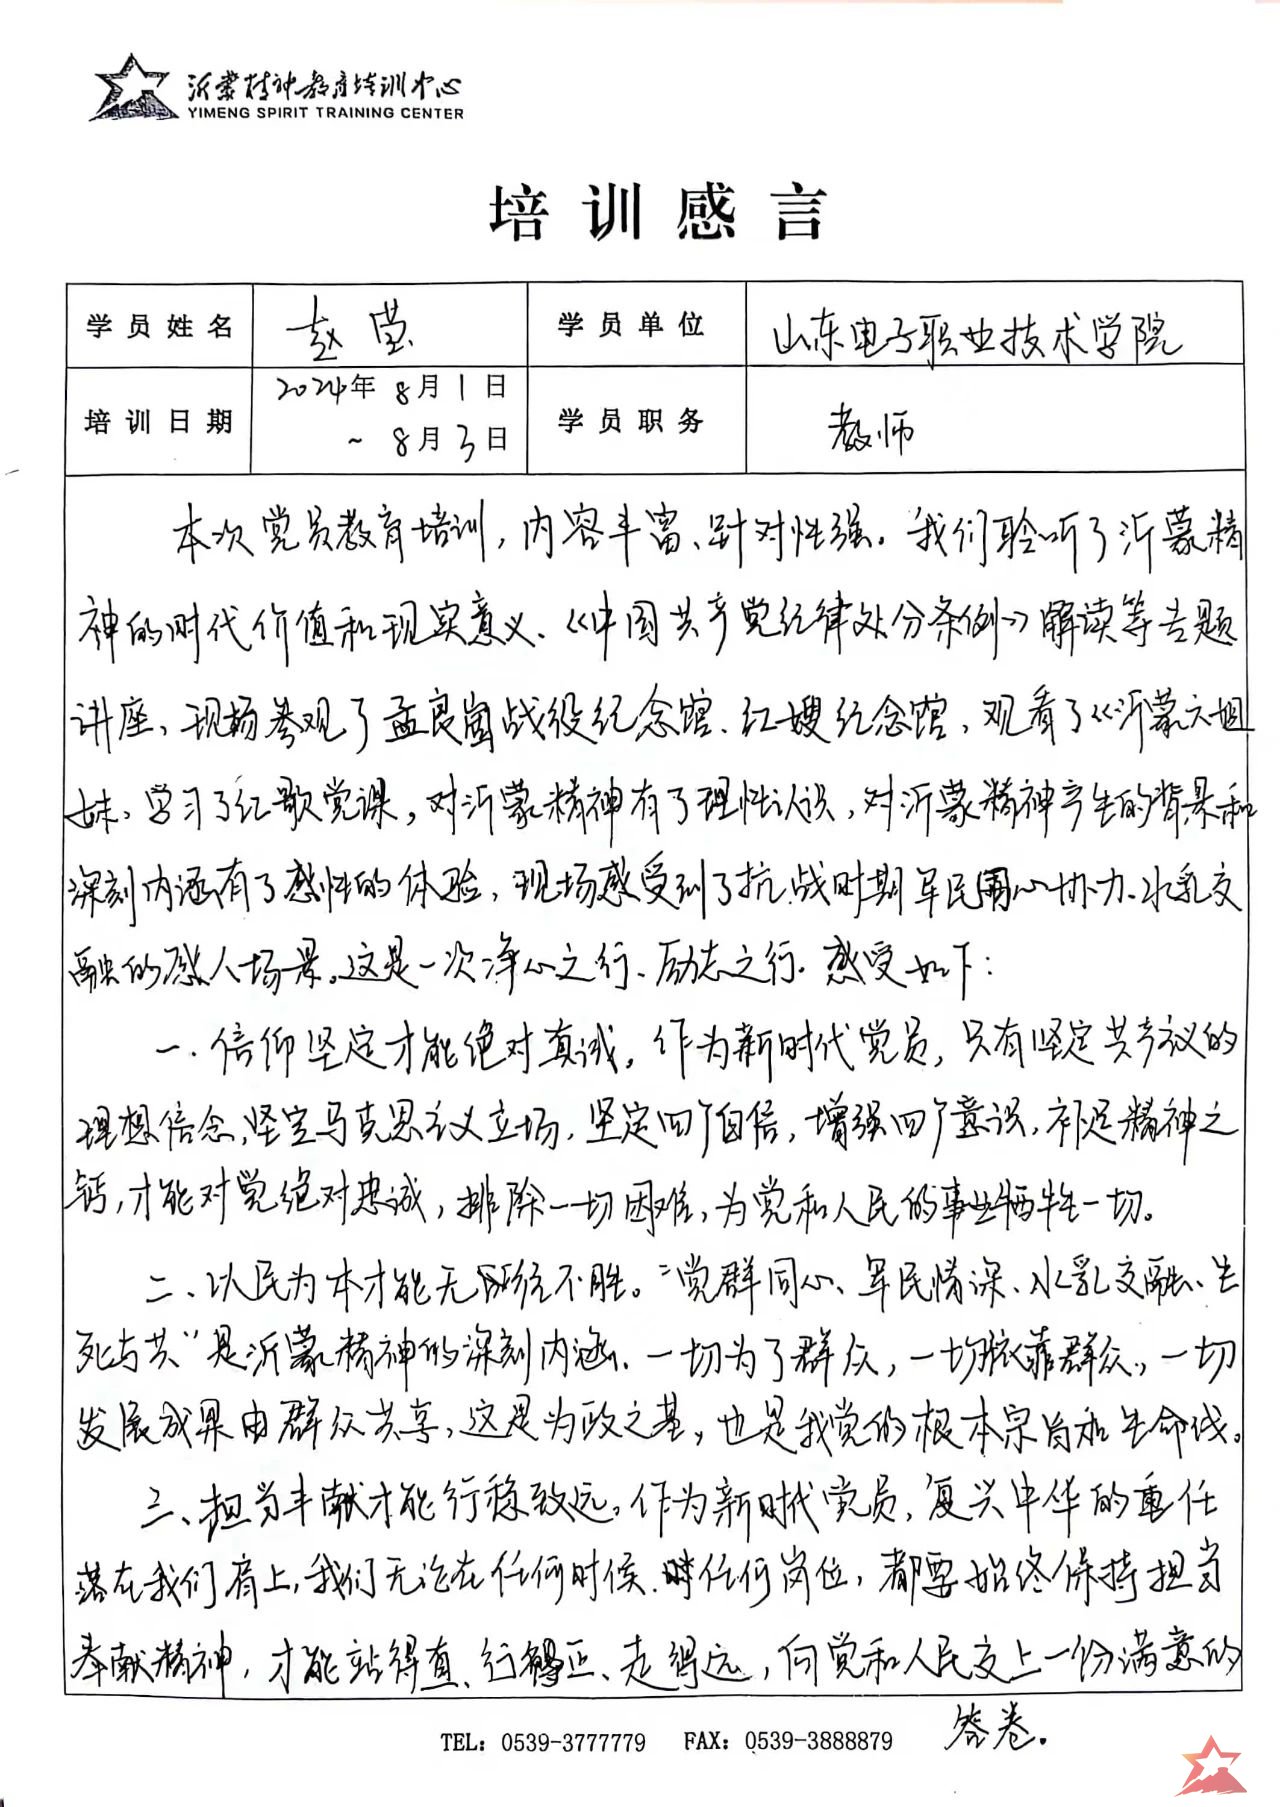 沂蒙精神教育培训中心
YIMENG SPIRIT TRAINING CENTER
培训感言
学员姓名 赵莹 学员单位 山东电子职业技术学院
培训日期 2024年8月1日 ~8月3日 学员职务 教师
本次党员教育培训，内容丰富、针对性强。我们聆听了沂蒙精
神的时代价值和现实意义、《中国共产党纪律处分条例》解读等专题
讲座，现场参观了孟良崮战役纪念馆、红嫂纪念馆，观看了《沂蒙六姐
妹，学习了红歌党课，对沂蒙精神有了理性认识，对沂蒙精神产生的背景和
深刻内涵有了感性的体验，现场感受到了抗战时期军民同心协力、水乳交
融的感人场景。这是一次净心之行、励志之行。感受如下：
一、信仰坚定才能绝对真诚。作为新时代党员，只有坚定共产议的
理想信念，坚定马克思主义立场，坚定四个自信，增强四个意识，补足精神之
钙，才能对党绝对忠诚，排除一切困难，为党和人民的事业牺牲一切。
二、以民为本才能无所往不胜。“党群同心、军民情深、水乳交融、生
死与共”是沂蒙精神的深刻内涵。一切为了群众，一切依靠群众，一切
发展成果由群众共享，这是为政之基，也是我党的根本宗旨和生命线。
三、担当奉献才能行稳致远。作为新时代党员，复兴中华的重任
落在我们肩上，我们无论在任何时候、任何岗位，都要始终保持担当
奉献精神，才能站得直、行得正、走得远，向党和人民交上一份满意的
答卷.
TEL: 0539-3777779 FAX: 0539-3888879